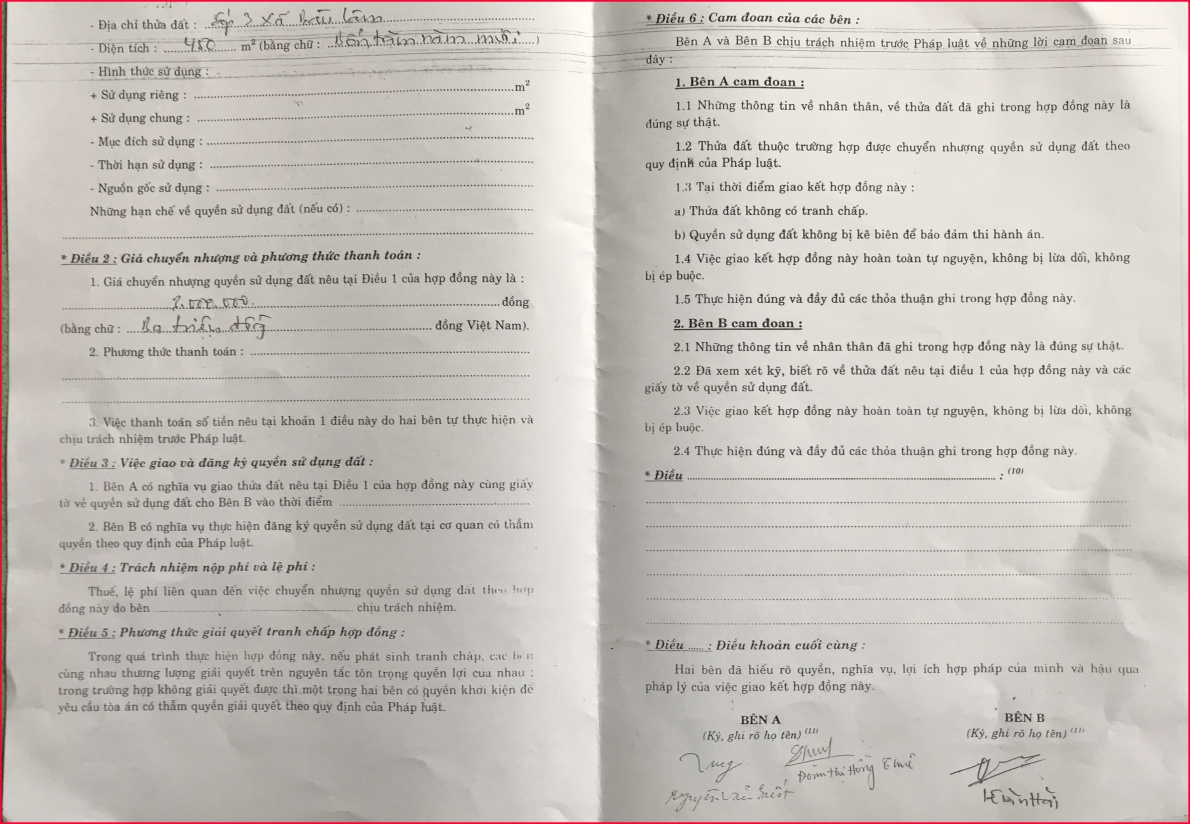 - Địa chỉ thửa đất : ấp 3 xã
- Diện tích : 450 m² (bằng chữ : Bốn trăm năm mươi )
- Hình thức sử dụng :
+ Sử dụng riêng : m²
+ Sử dụng chung : m²
- Mục đích sử dụng :
- Thời hạn sử dụng :
- Nguồn gốc sử dụng :
Những hạn chế về quyền sử dụng đất (nếu có) :
* Điều 2 : Giá chuyển nhượng và phương thức thanh toán :
1. Giá chuyển nhượng quyền sử dụng đất nêu tại Điều 1 của hợp đồng này là :
.000.000. đồng
(bằng chữ : Ba triệu đồng đồng Việt Nam).
2. Phương thức thanh toán :
3. Việc thanh toán số tiền nêu tại khoản 1 điều này do hai bên tự thực hiện và
chịu trách nhiệm trước Pháp luật.
* Điều 3 : Việc giao và đăng ký quyền sử dụng đất :
1. Bên A có nghĩa vụ giao thửa đất nêu tại Điều 1 của hợp đồng này cùng giấy
tờ về quyền sử dụng đất cho Bên B vào thời điểm
2. Bên B có nghĩa vụ thực hiện đăng ký quyền sử dụng đất tại cơ quan có thẩm
quyền theo quy định của Pháp luật.
* Điều 4 : Trách nhiệm nộp phí và lệ phí :
Thuế, lệ phí liên quan đến việc chuyển nhượng quyền sử dụng đất theo hợp
đồng này do bên chịu trách nhiệm.
* Điều 5 : Phương thức giải quyết tranh chấp hợp đồng :
Trong quá trình thực hiện hợp đồng này, nếu phát sinh tranh chấp, các bên
cùng nhau thương lượng giải quyết trên nguyên tắc tôn trọng quyền lợi của nhau ;
trong trường hợp không giải quyết được thì một trong hai bên có quyền khởi kiện để
yêu cầu tòa án có thẩm quyền giải quyết theo quy định của Pháp luật.
* Điều 6 : Cam đoan của các bên :
Bên A và Bên B chịu trách nhiệm trước Pháp luật về những lời cam đoan sau
đây :
1. Bên A cam đoan :
1.1 Những thông tin về nhân thân, về thửa đất đã ghi trong hợp đồng này là
đúng sự thật.
1.2 Thửa đất thuộc trường hợp được chuyển nhượng quyền sử dụng đất theo
quy định của Pháp luật.
1.3 Tại thời điểm giao kết hợp đồng này :
a) Thửa đất không có tranh chấp.
b) Quyền sử dụng đất không bị kê biên để bảo đảm thi hành án.
1.4 Việc giao kết hợp đồng này hoàn toàn tự nguyện, không bị lừa dối, không
bị ép buộc.
1.5 Thực hiện đúng và đầy đủ các thỏa thuận ghi trong hợp đồng này.
2. Bên B cam đoan :
2.1 Những thông tin về nhân thân đã ghi trong hợp đồng này là đúng sự thật.
2.2 Đã xem xét kỹ, biết rõ về thửa đất nêu tại điều 1 của hợp đồng này và các
giấy tờ về quyền sử dụng đất.
2.3 Việc giao kết hợp đồng này hoàn toàn tự nguyện, không bị lừa dối, không
bị ép buộc.
2.4 Thực hiện đúng và đầy đủ các thỏa thuận ghi trong hợp đồng này.
* Điều : (10)
* Điều ...... : Điều khoản cuối cùng :
Hai bên đã hiểu rõ quyền, nghĩa vụ, lợi ích hợp pháp của mình và hậu quả
pháp lý của việc giao kết hợp đồng này.
BÊN A
(Ký, ghi rõ họ tên) (11)
Đoàn Thị Hồng
Nguyễn Văn
BÊN B
(Ký, ghi rõ họ tên) (11)